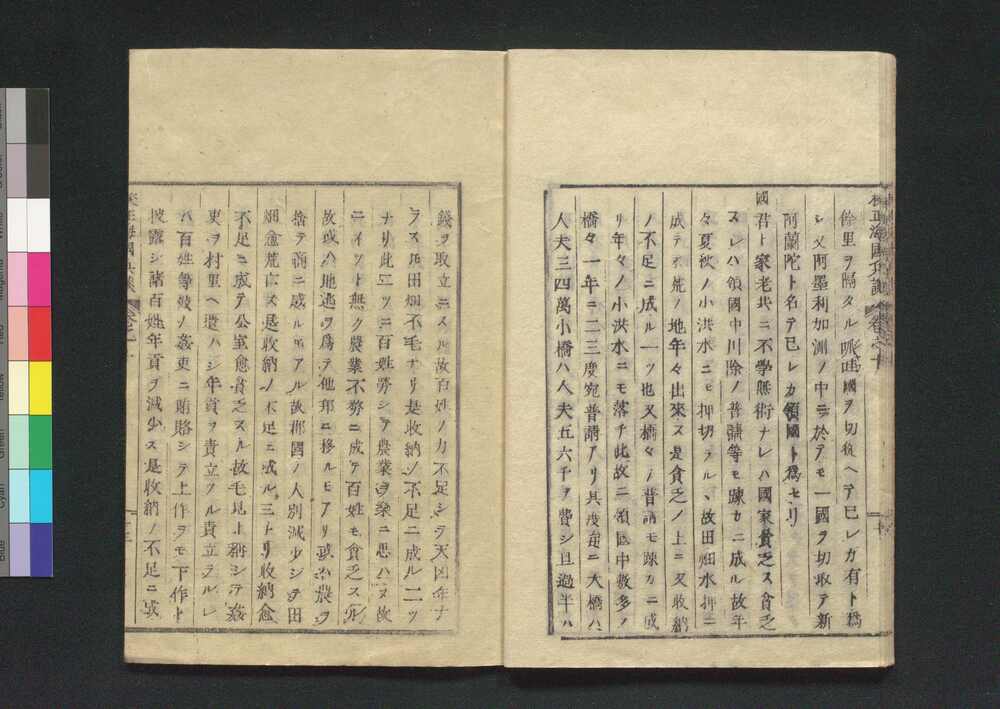 餘里ヲ隔タル咬𠺕吧國ヲ切從ヘテ己レカ有ト爲
シ又阿墨利加洲ノ中ニ於テモ一國ヲ切取テ新
阿蘭陀ト名テ己レカ領國ト爲セリ
國君ト家老共ニ不學無術ナレハ國家貧乏ス貧乏
スレハ領國中川除ノ普請等モ疎カニ成ル故年
々夏秋ノ小洪水ニモ押切ラル、故田畑水押ニ
成テ荒ノ地年々出來ス是貧乏ノ上ニ又收納
ノ不足ニ成ル一ツ也又橋々ノ普請モ疎カニ成
リ年々ノ小洪水ニモ落チ此故ニ領國中數多ノ
橋々一年ニ二三度宛普請アリ其度毎ニ大橋ハ
人夫三四萬小橋ハ人夫五六千ヲ費シ且過半ハ
錢ヲ取立ニスル故百姓ノ力不足シテ天凶年ナ
ラス凡田畑不毛ナリ是收納ノ不足ニ成ル二ツ
ナリ此二ツニ百姓勞シテ農業ヲ樂ニ思ハヌ故
ニイツト無ク農業不努ニ成テ百姓モ貧乏スル
故或ハ地逃ヲ爲テ他邦ニ移ルモアリ或ハ農ヲ
捨テ商ニ成ルモアル故郷國ノ人別減少シテ田
畑愈荒亡ス是收納ノ不足ニ成ル三トリ收納愈
不足ニ成テ公室愈貧乏スル故毛見ト稱シテ姦
吏ヲ村里ヘ遣ハシ年貢ヲ責立ツル責立ラルレ
ハ百姓等彼ノ姦吏ニ賄賂シテ上作ヲモ下作ト
披露シ諸百姓年貢ヲ減少ス是收納ノ不足ニ成